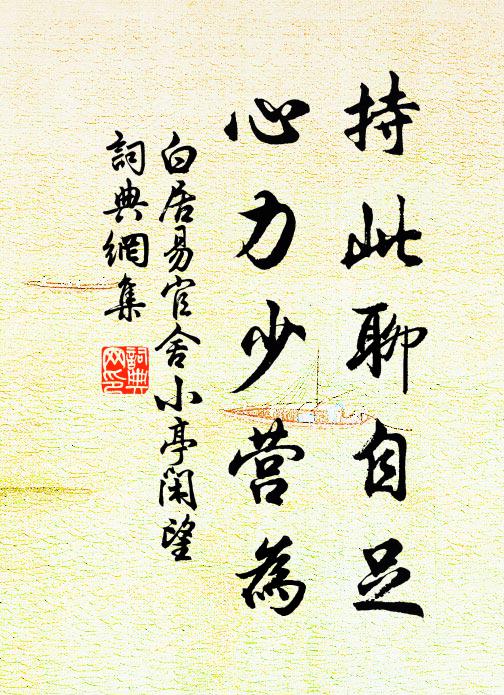 持此聊自足
心力少营為
白居易官舍小亭闲望
詞典網集
詞典网印